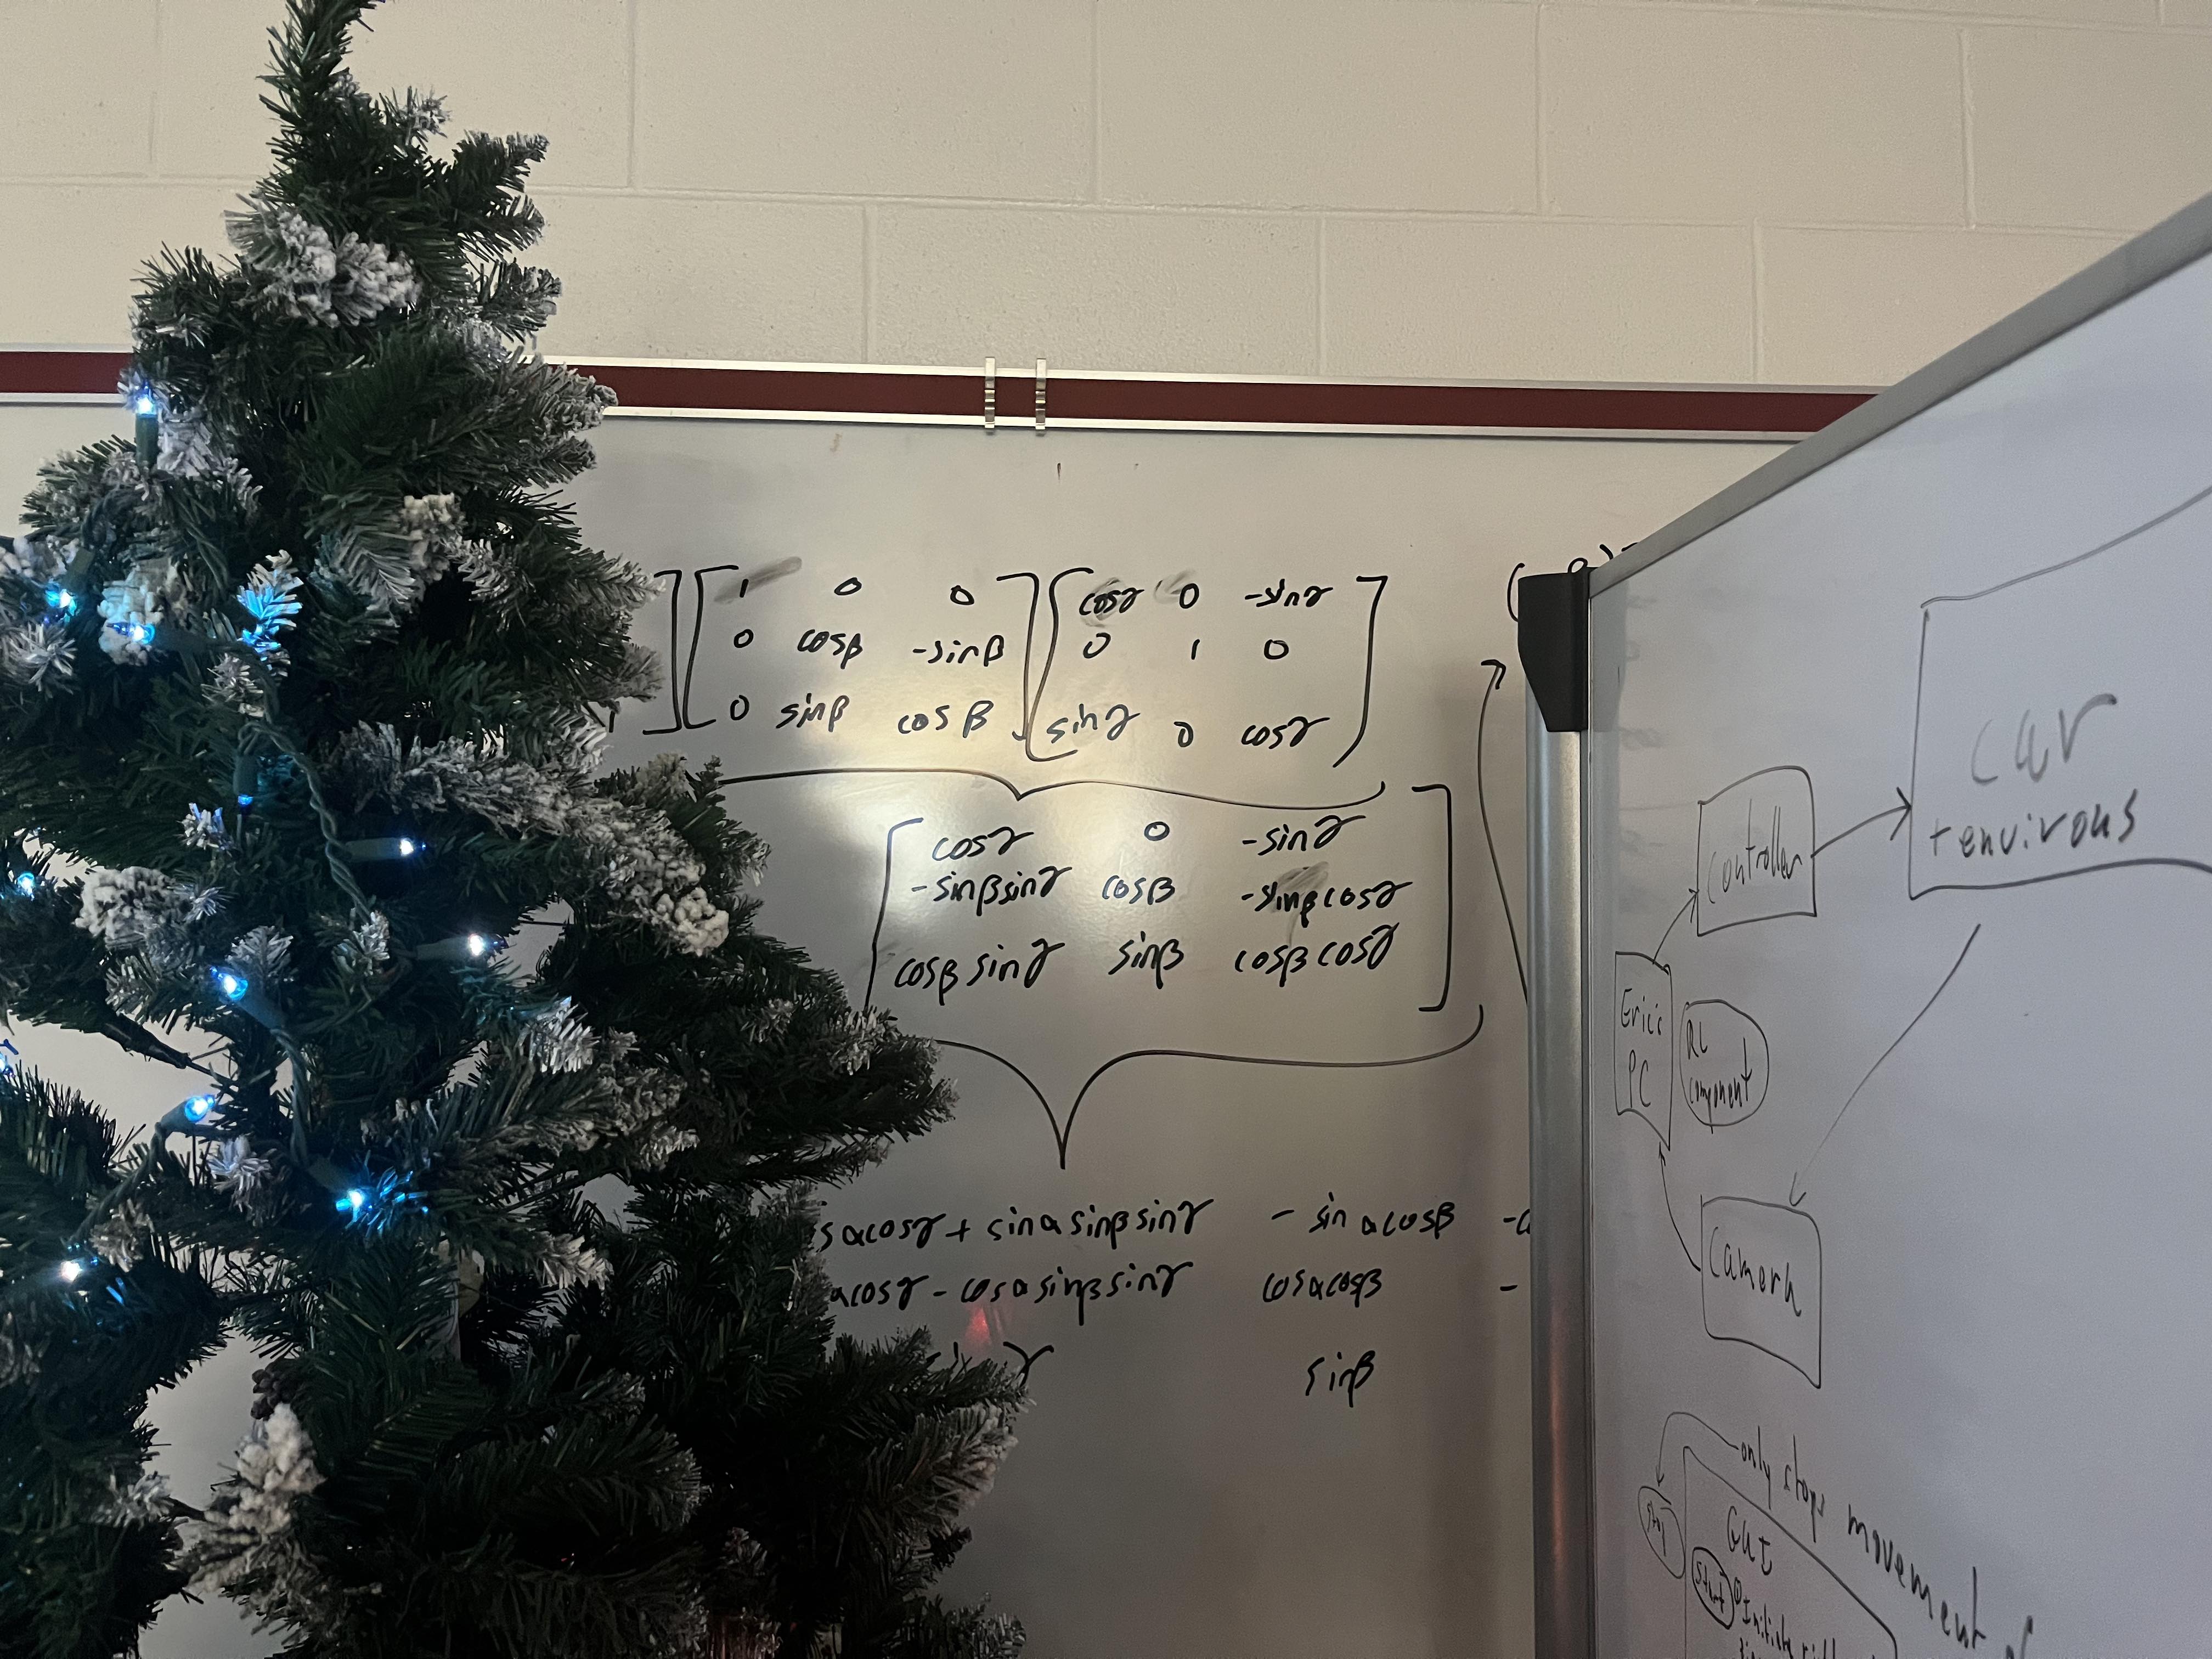 1 0 0
0 cosβ -sinβ
0 sinβ cosβ
cosγ 0 -sinγ
0 1 0
sinγ 0 cosγ
cosγ 0 -sinγ
-sinβsinγ cosβ -sinβcosγ
cosβsinγ sinβ cosβcosγ
αcosγ + sinαsinβsinγ -sinαcosβ
αcosγ - cosαsinβsinγ cosαcosβ -
sinβ
car
+ environs
Controller
Eric's
PC
RL
component
Camera
only stops movement
Stop
GUI
Start